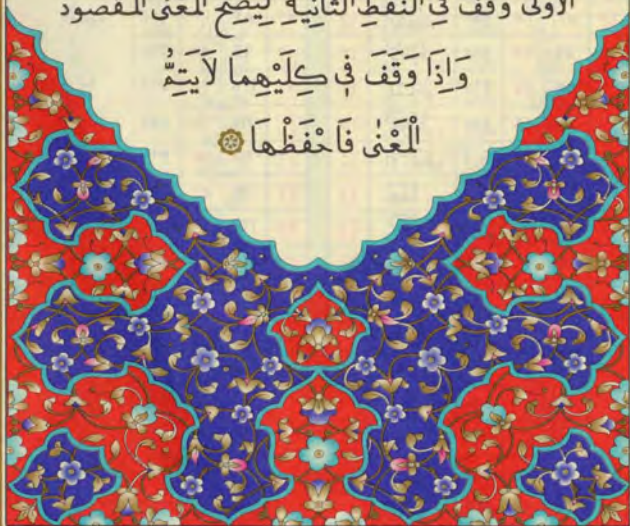 الاولى وقف في النقط الثانية ليتضح المعنى المقصود
وَاِذَا وَقَفَ فٖي كِلَيْهِمَا لَايَتِمُّ
الْمَعْنٰى فَاحْفَظْهَا